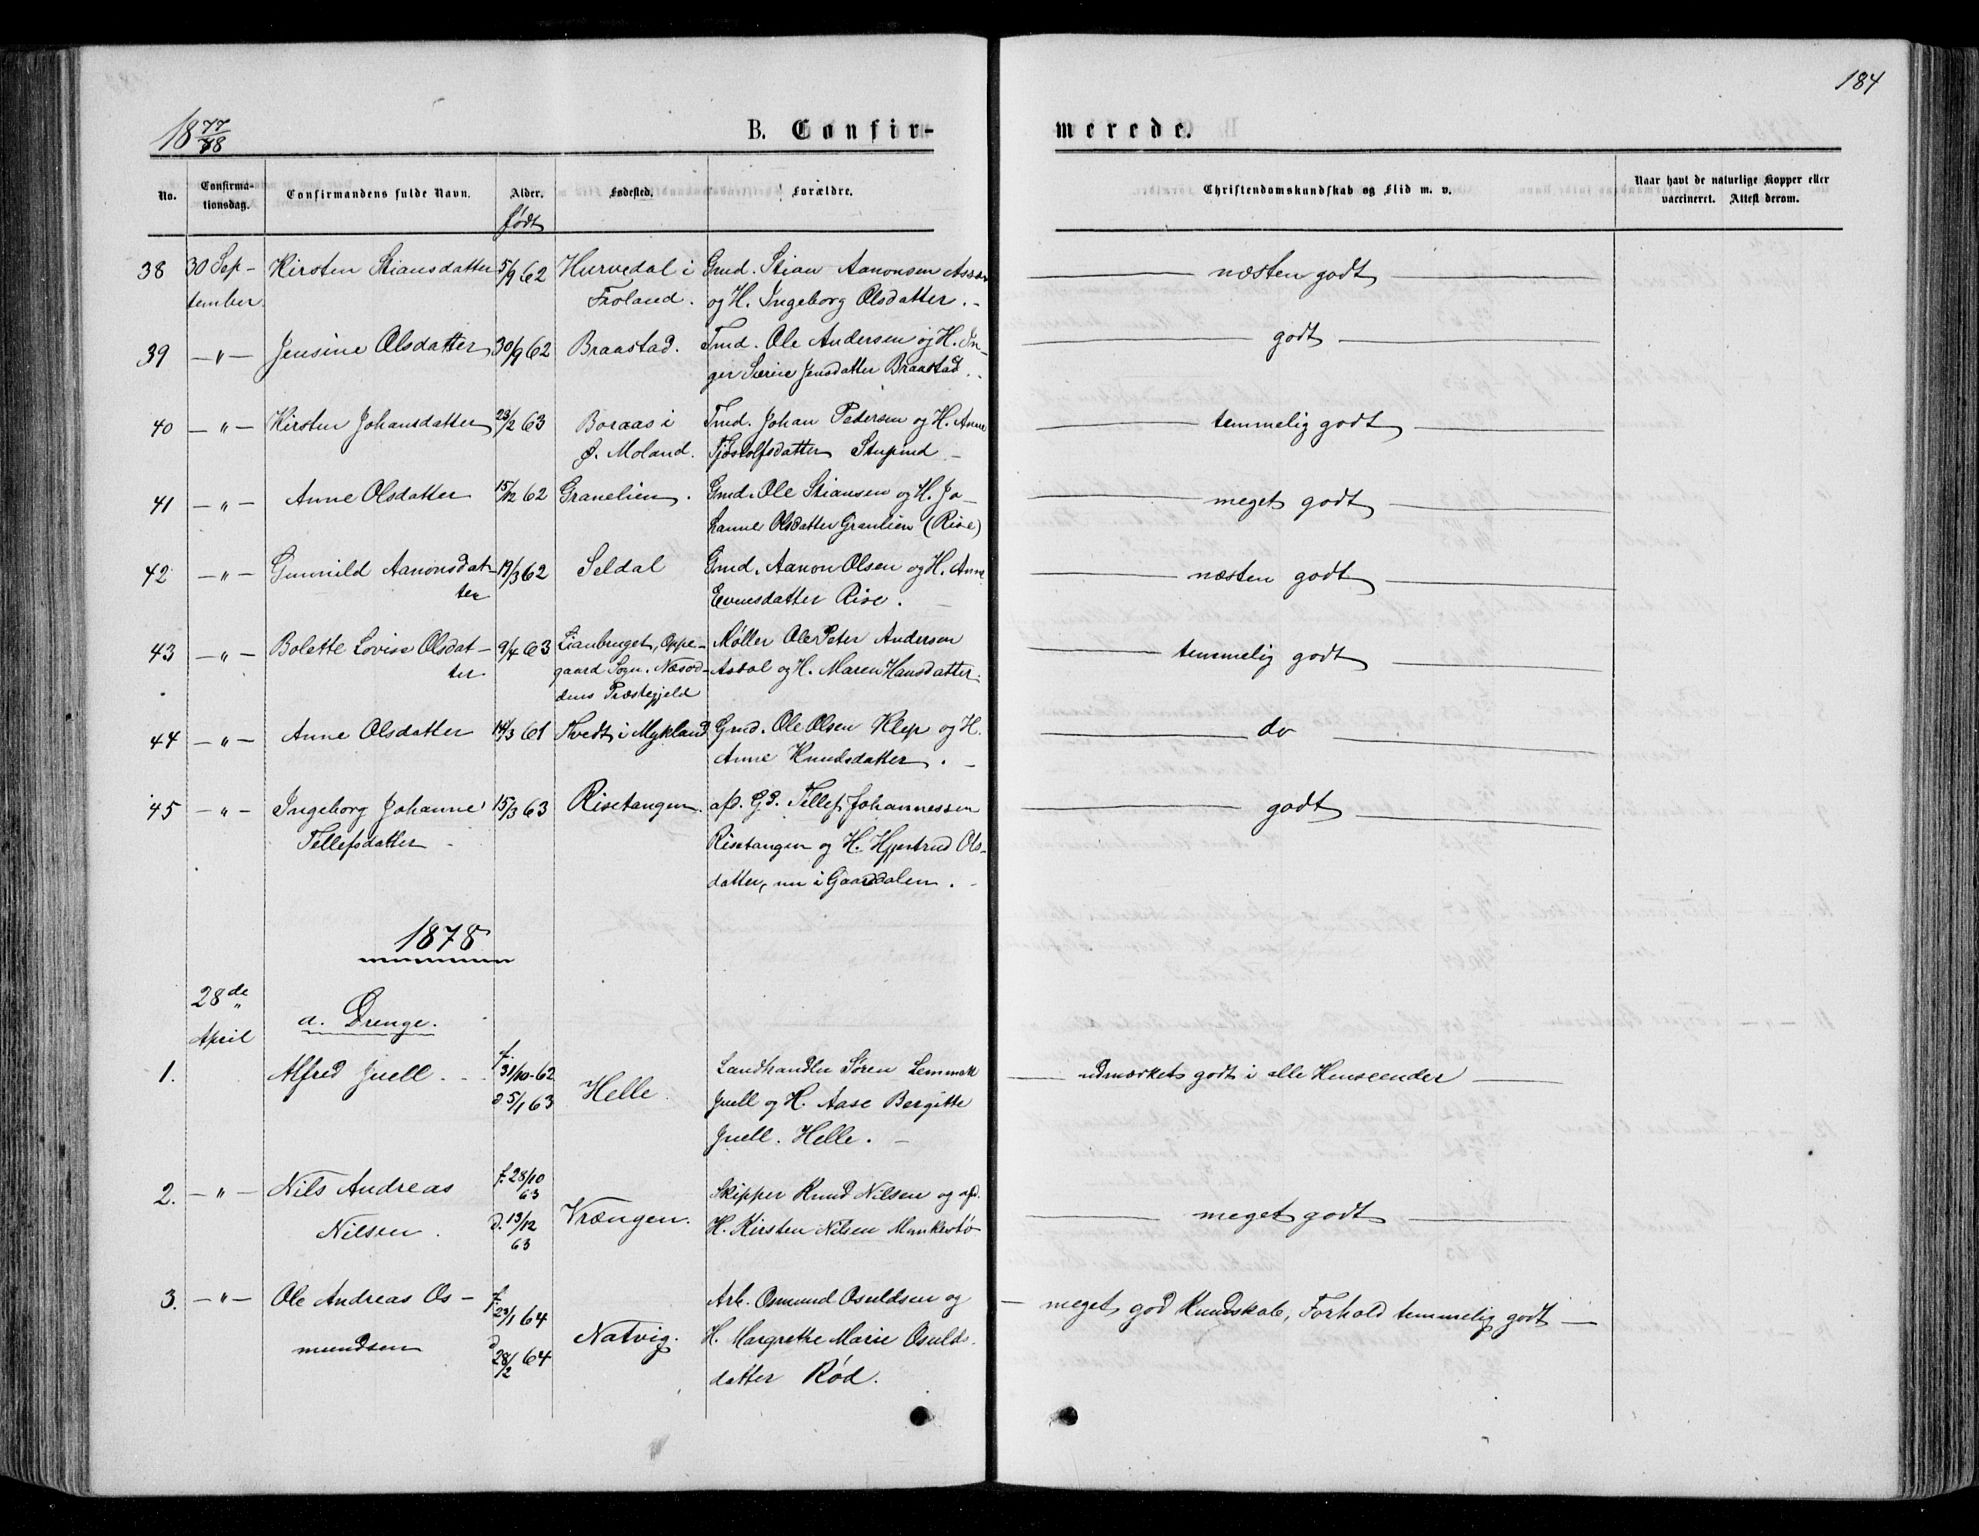 184
18 77/78
B. Confirmerede.
No. Confirmationsdag. Confirmandens fulde Navn. Alder. født Fødested. Forældre. Christendomskundskab og Flid m. v. Naar havt de naturlige Kopper eller vaccineret. Attest derom.
38 30 Sep- Kirsten Stiansdatter 5/9 62 Hurvedal i Gmd. Stian Aanonsen næsten godt
tember Froland. og H. Ingeborg Olsdatter.
39 —"— Jensine Olsdatter 30/9 62 Braastad. Tmd. Ole Andersen og H. In- godt
ger Serine Jensdatter Braastad.
40 —"— Kirsten Johansdatter 23/2 63 Boraas i Tmd. Johan Pedersen og H. Anne temmelig godt
Ø. Moland. Tjostolfsdatter
41 —"— Anne Olsdatter 15/12 62 Granelien. Gmd. Ole Stiansen og H. Jo- meget godt
hanne Olsdatter Granlien (Rise)
42 —"— Gunnild Aanonsdat- 19/3 62 Seldal Gmd. Aanon Olsen og H. Anne næsten godt
ter Evensdatter Rise.
43 —"— Bolette Lovise Olsdat- 63 Lianbruget, Oppe- Møller Ole Peter Andersen temmelig godt
ter gaard Sogn. Næsod- Asdal og H. Maren Hansdatter.
dens Præstegjeld
44 —"— Anne Olsdatter 14/3 61 Tvedt i Mykland Gmd. Ole Olsen Klep og H. do
Anne Knudsdatter.
45 —"— Ingeborg Johanne 15/3 63 Risetangen. afd. Gd. Tellef Johannessen godt
Tellefsdatter Risetangen og H. Hjertrud Ols-
datter, nu i Gaarddalen.
1878
28de
April a. Drenge.
1. Alfred Juell. f. 31/10-62 Helle. Landhandler Søren Lemmick udmærket godt i alle Henseender
d 5/1 63 Juell og H. Aase Bergitte
Juell. Helle.
2. —"— Nils Andreas f. 28/10 63 Vrængen. Skipper Knud Nilsen og afd. meget godt
Nilsen. d. 13/12 63 H. Kirsten Nilsen Munkestø
3. —"— Ole Andreas Os- f. 23/1 64 Natvig. Arb. Osmund Osuldsen og meget god Kundskab, Forhold temmelig godt
mundsen d 28/2 64 H. Margrethe Marie Osulds-
datter Rød.